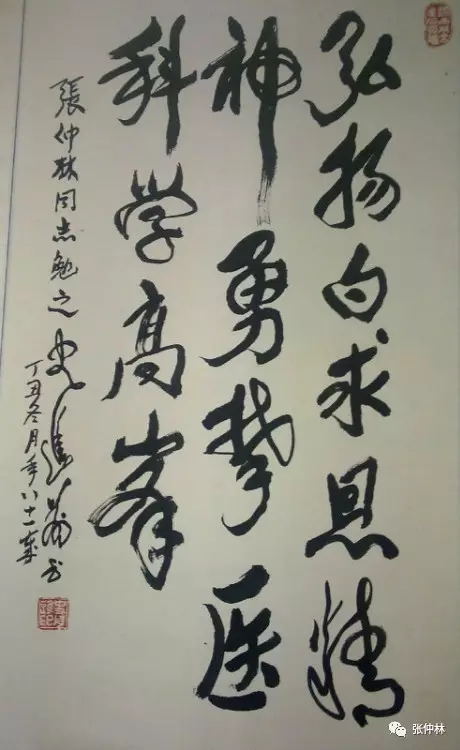 弘扬白求恩精
神勇攀医
科学高峯
張仲林同志勉之
史進前书
丁丑冬月年八十一歲
张仲林